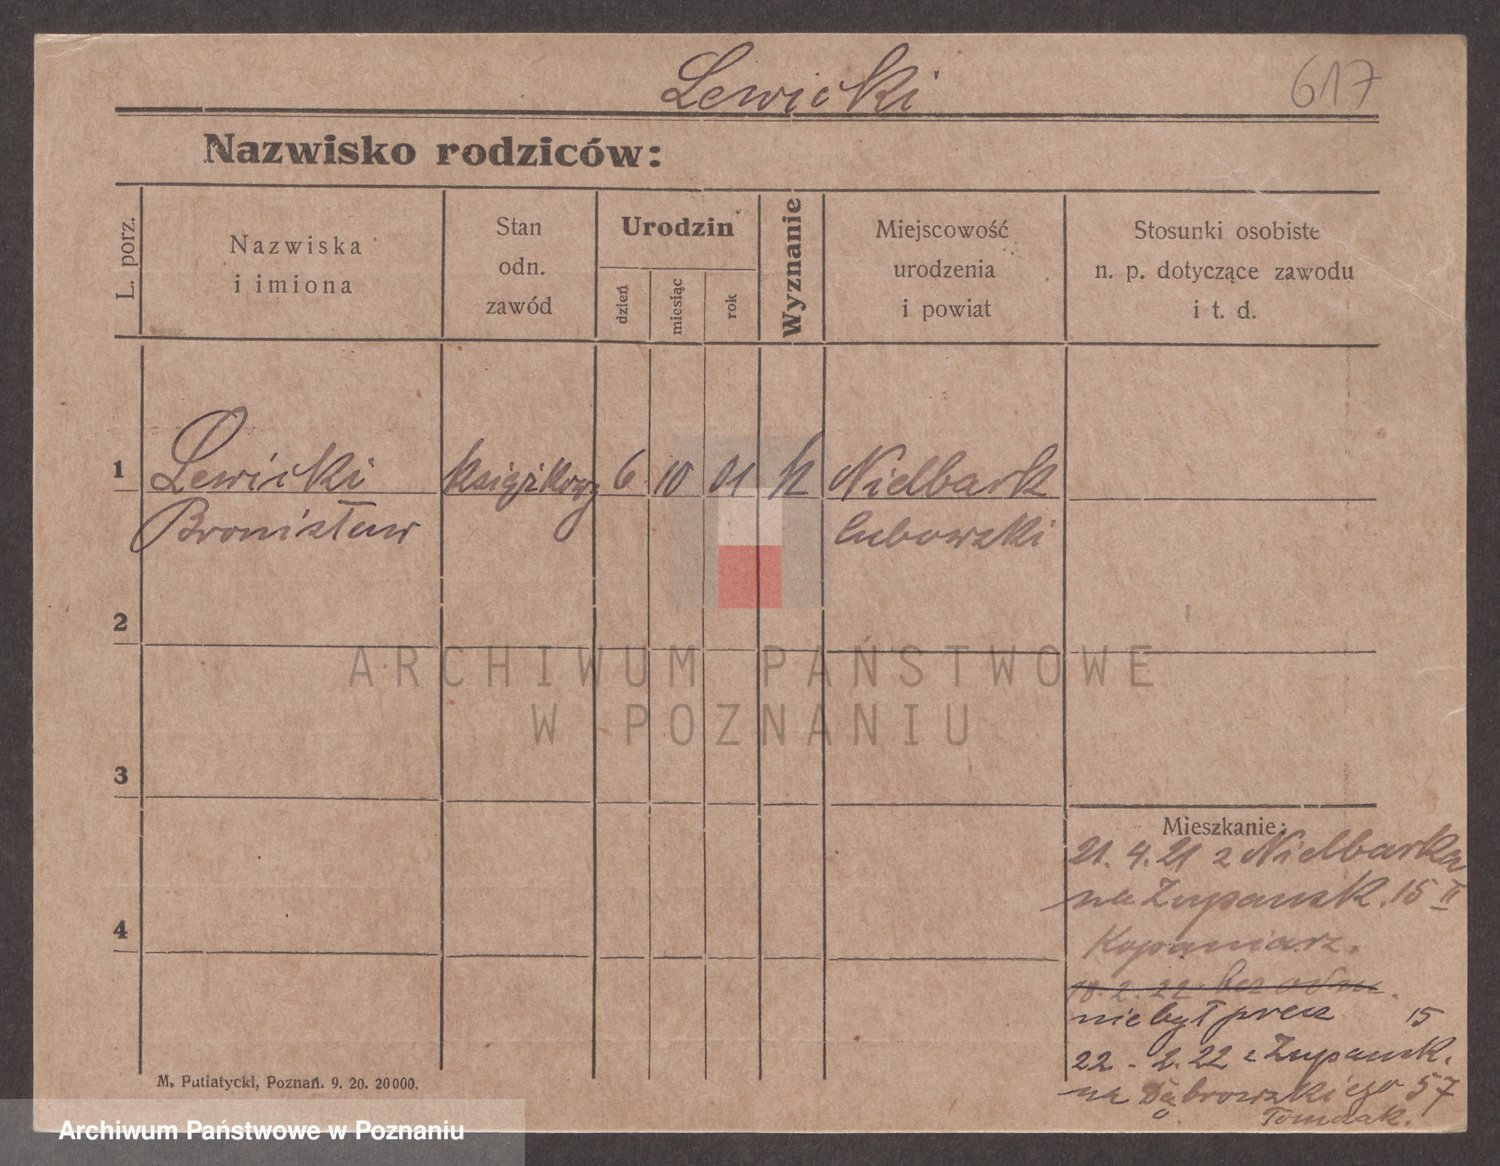 Lewicki
617
Nazwisko rodziców:
L. porz.
Nazwiska
i imiona
Stan
odn.
zawód
Urodzin
dzień
miesiąc
rok
Wyznanie
Miejscowość
urodzenia
i powiat
Stosunki osobiste
n. p. dotyczące zawodu
i t. d.
1
Lewicki książkowy 6 10 01 Nielbark
Bronisław lubowski
2
ARCHIWUM PAŃSTWOWE
W POZNANIU
3
Mieszkanie:
21. 4. 21 z Nielbarka
na Żupańsk. 15 II
4
18. 2. 22 bez odm.
nie był precz 15
22 - 2. 22 z Żupańsk.
na Dąbrowskiego 57
Tomczak.
M. Putiatycki, Poznań. 9. 20. 20000.
Archiwum Państwowe w Poznaniu